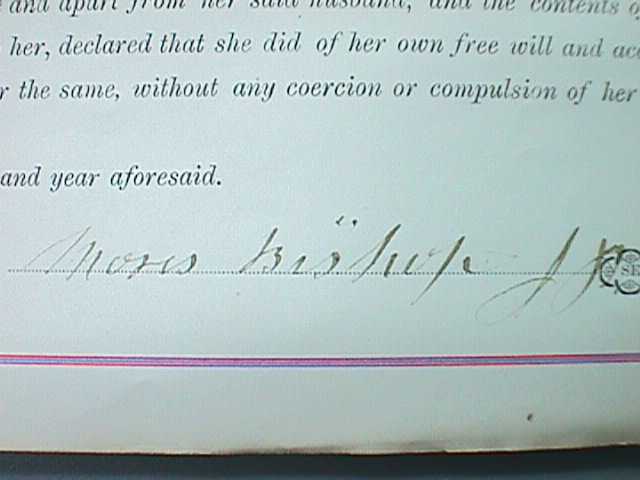 and apart from her said husband, and the contents o
her, declared that she did of her own free will and acc
r the same, without any coercion or compulsion of her
and year aforesaid.
Moses Bishop J P
SE